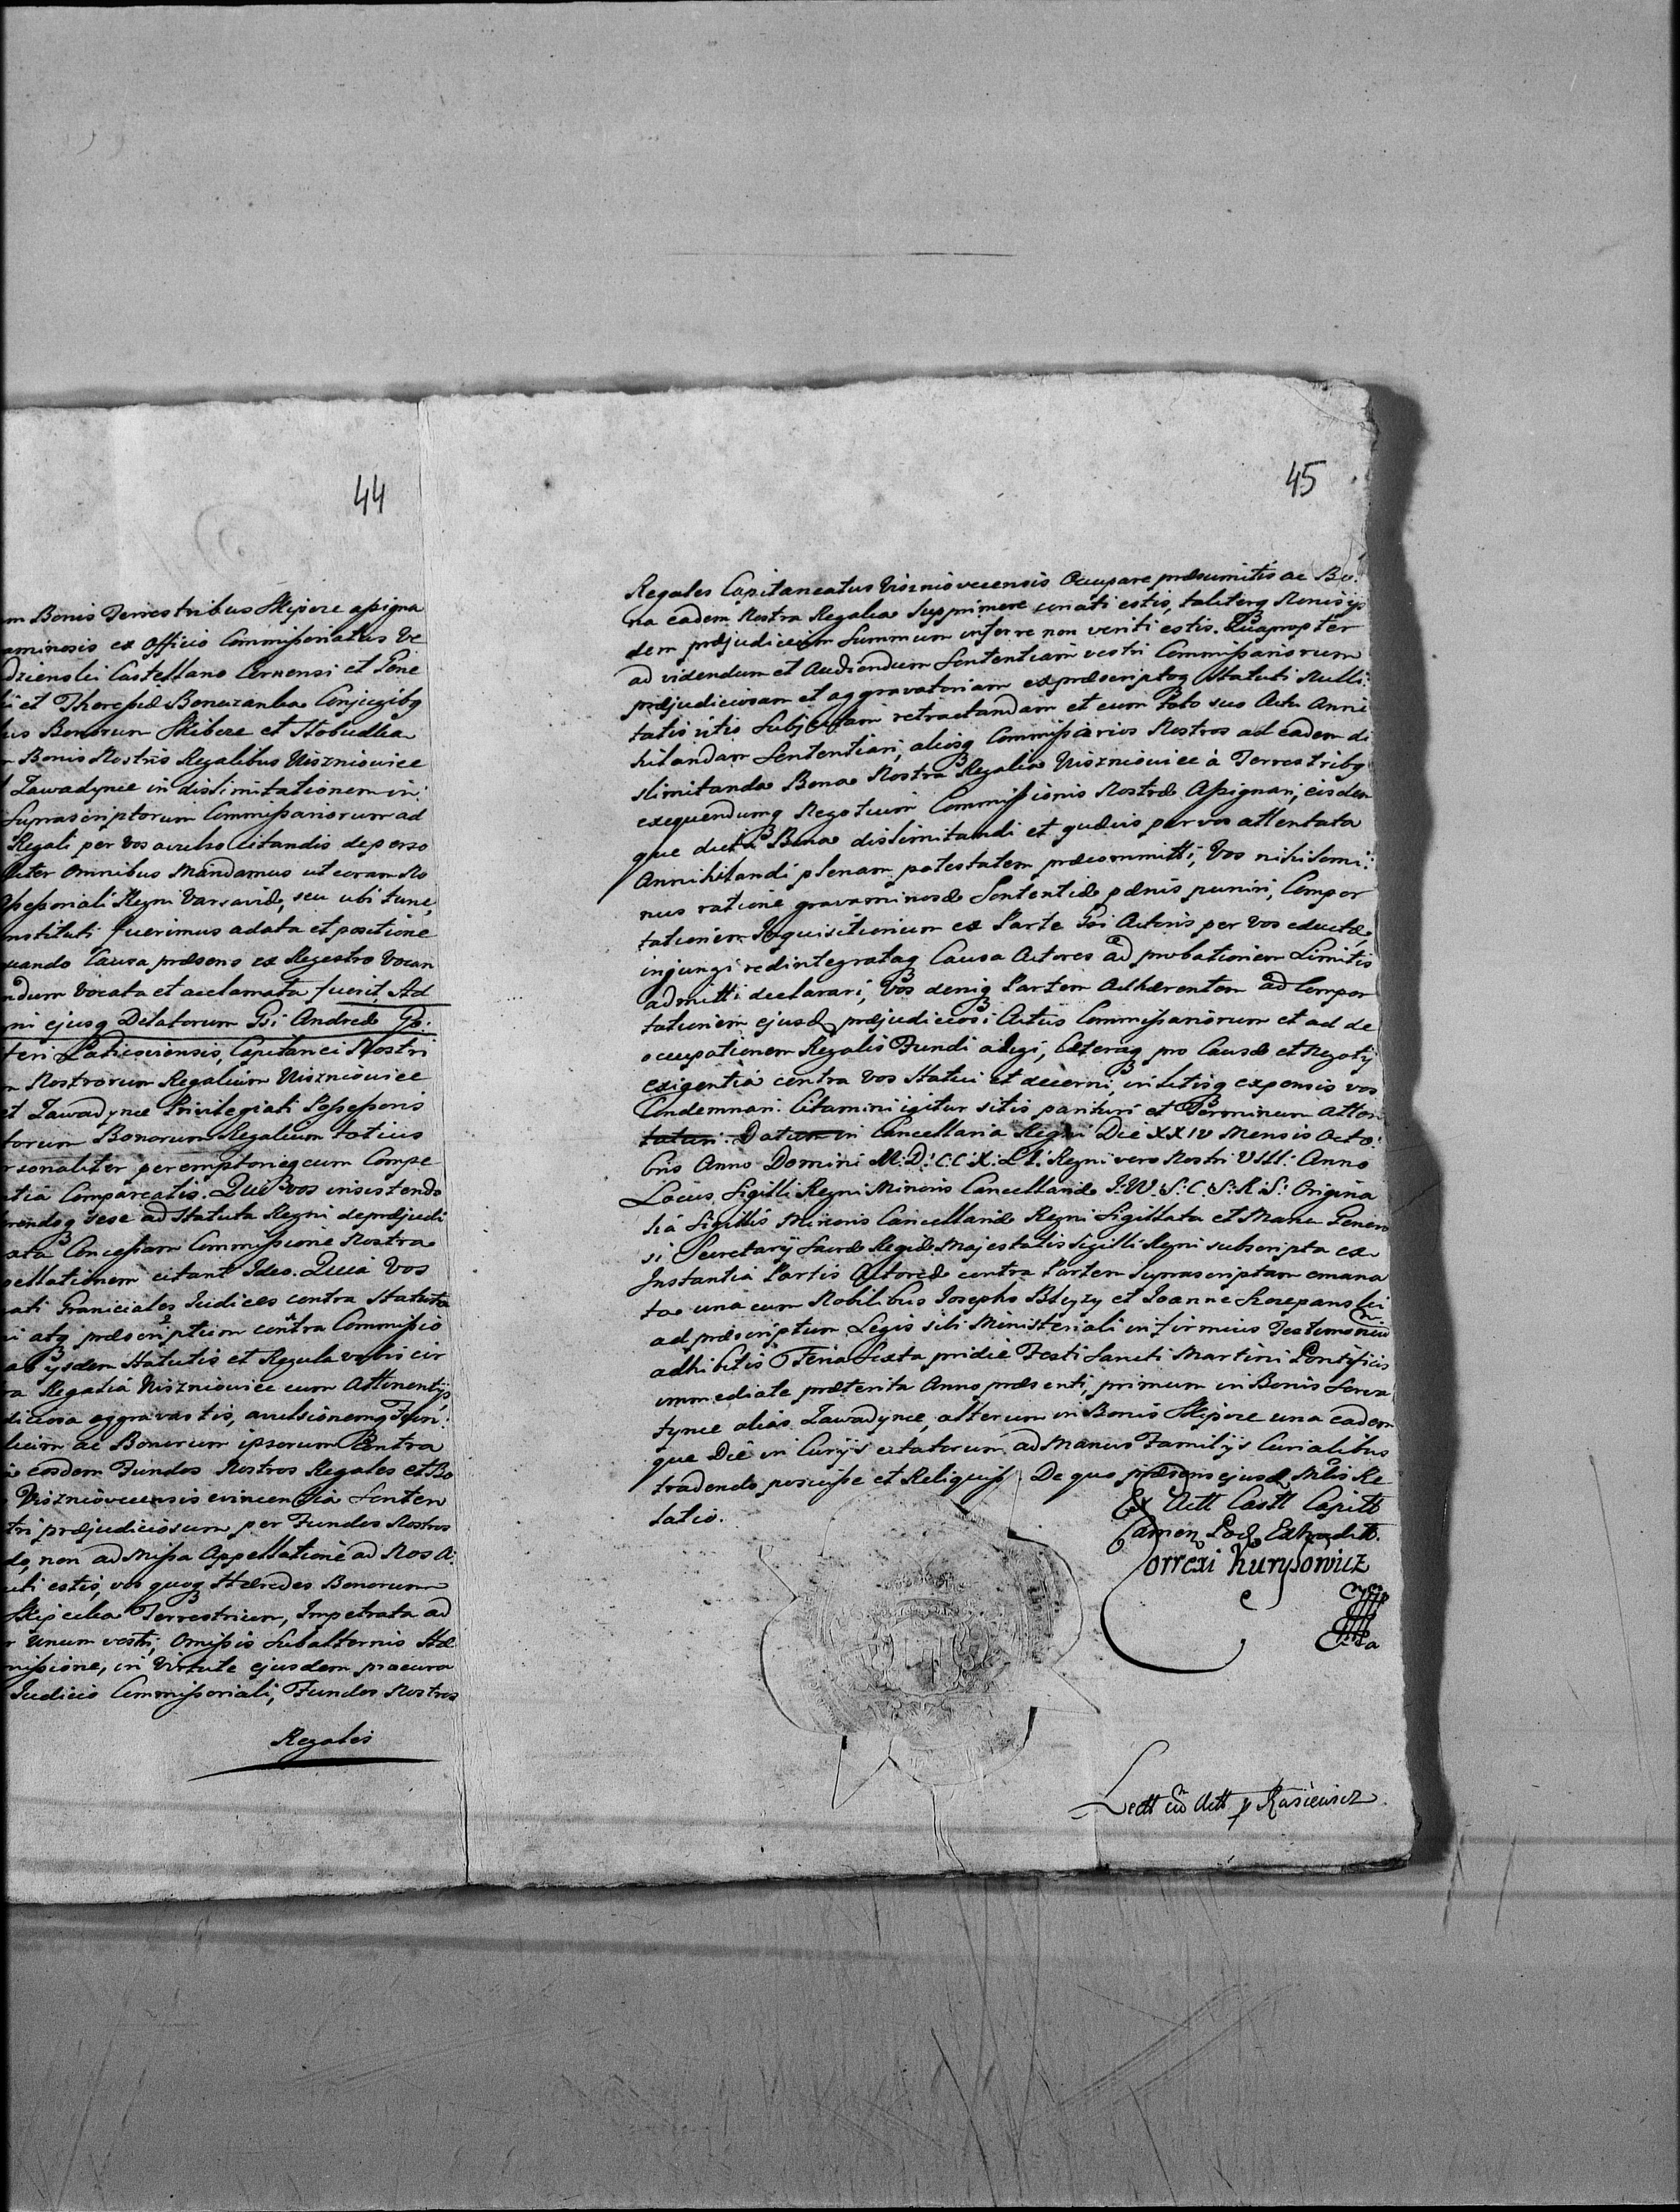 44
m Bonis Terrestribus Skipcze assigna
aminosis ex Officio Commissoriatus Ve
dzienski Castellano Cernensi et Gene
ii et Theressiæ Bonczanka Conjugibq
us Bonorum Skibcze et Slobudka
Bonis Nostris Regalibus Niszniowice
Zawadynce in dislimitationem in:
Suprascriptorum Commissariorum ad
Regali per Vos avulso Citandis de perso
liter Omnibus Mandamus ut coram No
ssessoriali Regni Varsaviæ, seu ubi tunc,
nstituti fuerimus a data et positione
uando Causa præsens ex Regestro Vocan
ndum Vocata et acclamata fuerit, Ad
ni ejusq Delatorum Gsi Andreæ Go:
teri Laticoviensis, Capitanei Nostri
Nostrorum Regalium Niszniowice
et Zawadynce Privilegiati Possessoris
torum Bonorum Regalium totius
rsonaliter peremptorieq cum Compe
tia Compareatis. Qui vos insistendo
rendoq sese ad Statuta Regni de præjudi
ata Concessam Commissione Nostra
pellationem citant Ideo. Quia Vos
ati Graniciales Judices contra Statuta
i atq præscriptum contra Commissio
ab ijsdem Statutis et Regula vobis cir
ra Regalia Niszniowice cum Attinentijs
diciosa aggravastis, avulsionemq Fun:
licum ac Bonorum ipsorum Contra
eosdem Fundos Nostros Regales et Bo
Niszniovecensis evincendia Senten
tri præjudiciosum, per Fundos Nostros
do, non admissa Appellatione ad Nos A:
uti estis, vos quoq Hæredes Bonorum
Skipcka Terrestrium, Impetrata ad
Unum vestri, Omissis Subalternis Hæ
missione, in Virtute ejusdem procura
Judicio Commissoriali, Fundos Nostros
Regales
45
Regales Capitaneatus Niszniovecensis Occupare præsumitis ac Bo:
na eadem Nostra Regalia Supprimere conati estis, taliterq Nonis ijs
dem præjudicium Summum inferre non veriti estis. Quapropter
ad videndum et Audiendum Sententiam vestri Commissariorum
præjudiciosam et aggravatoriam ex præscriptoq Statuti Nulli:
tatis vitio Subjectam retractandam et cum toto suo Actu Anni
hilandam Sententiari, aliosq Commissarios Nostros ad eadem di
slimitanda Bona Nostra Regalia Niszniowice à Terrestribq
exequendumq Negotium Commissionis Nostræ Assignari, eisdem
que dicta Bona dislimitandi et quævis per vos attentata
Annihilandi plenam potestatem præcommitti, Vos nihilomi:
nus ratione gravaminosæ Sententiæ pænis puniri, Compor
tationem Inquisitionum ex Parte Gsi Actoris per Vos eductæ,
injungi redintegrataq Causa Actores ad probationem Limitis
admitti declarari, Vos deniq Partem Adhærentem ad Compor
tationem ejusd præjudiciosi Actus Commissariorum et ad de
occupationem Regalis Fundi adigi, Cæteraq pro Causæ et Negotij
exigentia contra Vos Statui et decerni, in litisq expensis vos
Condemnari. Citamini igitur sitis parituri et Terminum atten
taturi. Datum in Cancellaria Regni Die XXIV Mensis Octo:
bris Anno Domini M:D:C:C:X:L:I: Regni vero Nostri VIII: Anno
Locus Sigilli Regni Minoris Cancellariæ I:W:S:C:S:R:S: Origina
lia Sigillis Minoris Cancellariæ Regni Sigillata et Manu Genero
si Secretarij Sacræ Regiæ Majestatis Sigilli Regni subscripta ex
Instantia Partis Actoreæ contra Partem Suprascriptam emana
ta una cum Nobilibus Josepho Błęzy et Joanne Szczepanski
ad præscriptum Legis sibi Ministeriali in firmius Testimonium
adhibitis Feria Sexta pridie Festi Sancti Martini Pontificis
immediate præterita Anno præsenti, primum in Bonis Serwa
tynce alias Zawadynce, alterum in Bonis Skipcze una eadem
que Die in Curijs citatorum ad Manus Familijs Curialibus
tradendo posuisse et Reliquiss. De quo præsens ejusd Mlis Re
latio.
Ex Actt Castt Capitt
Camen Pod Extradtt.
Correxi Kurysowicz
Lectt cũ Actt p Rasiewicz